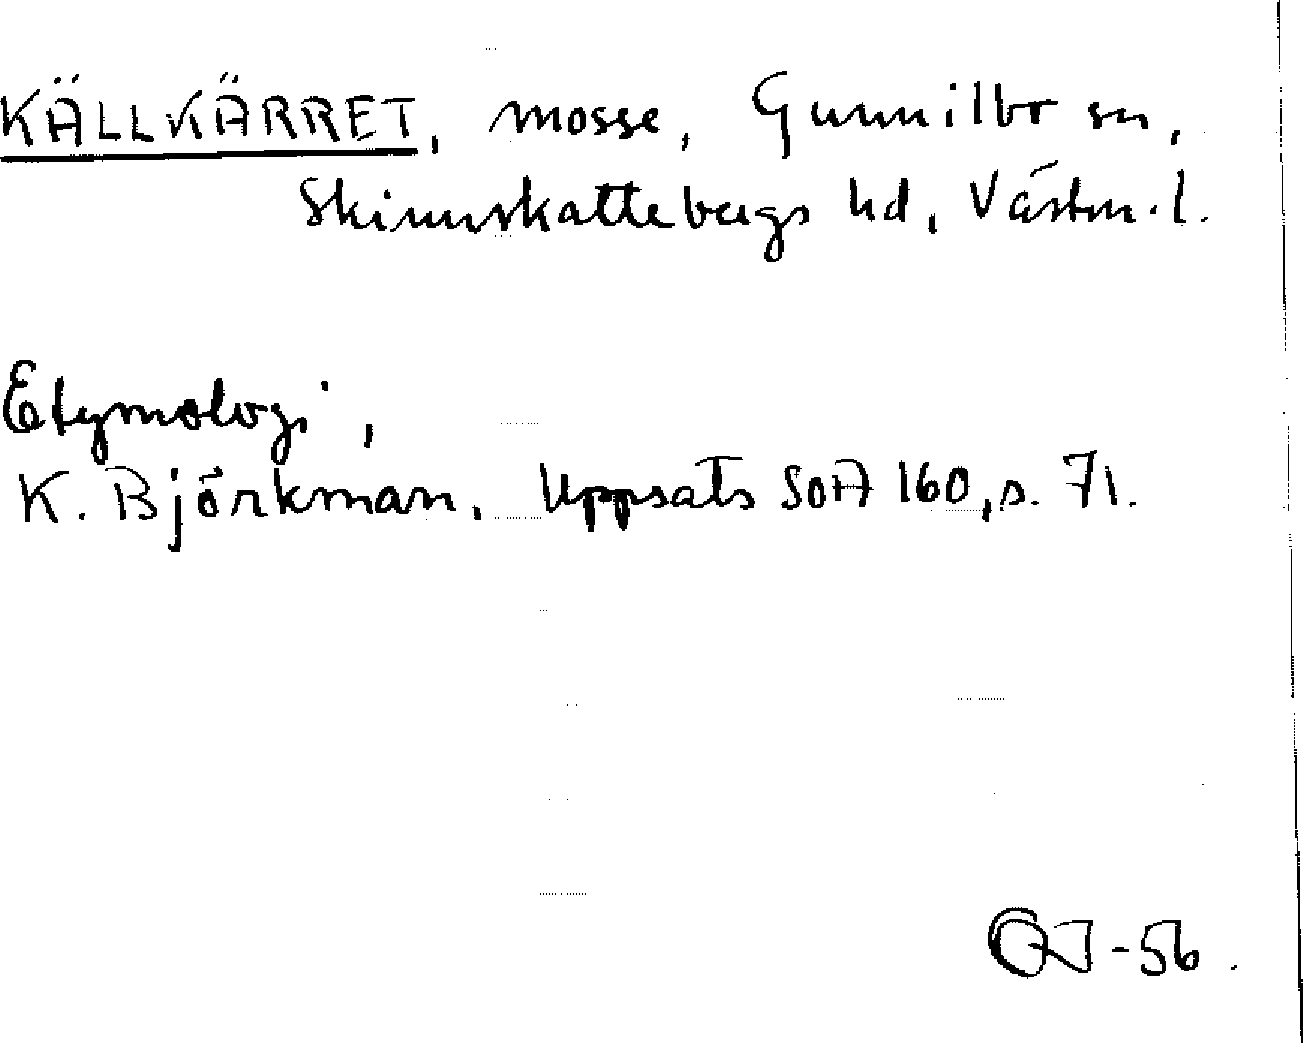 KÄLLKÄRRET, mosse, Gunnilbo sn,
Skinnskattebergs hd, Västm. l.
Etymologi,
K. Björkman, Uppsats SOA 160, s. 71.
-56.